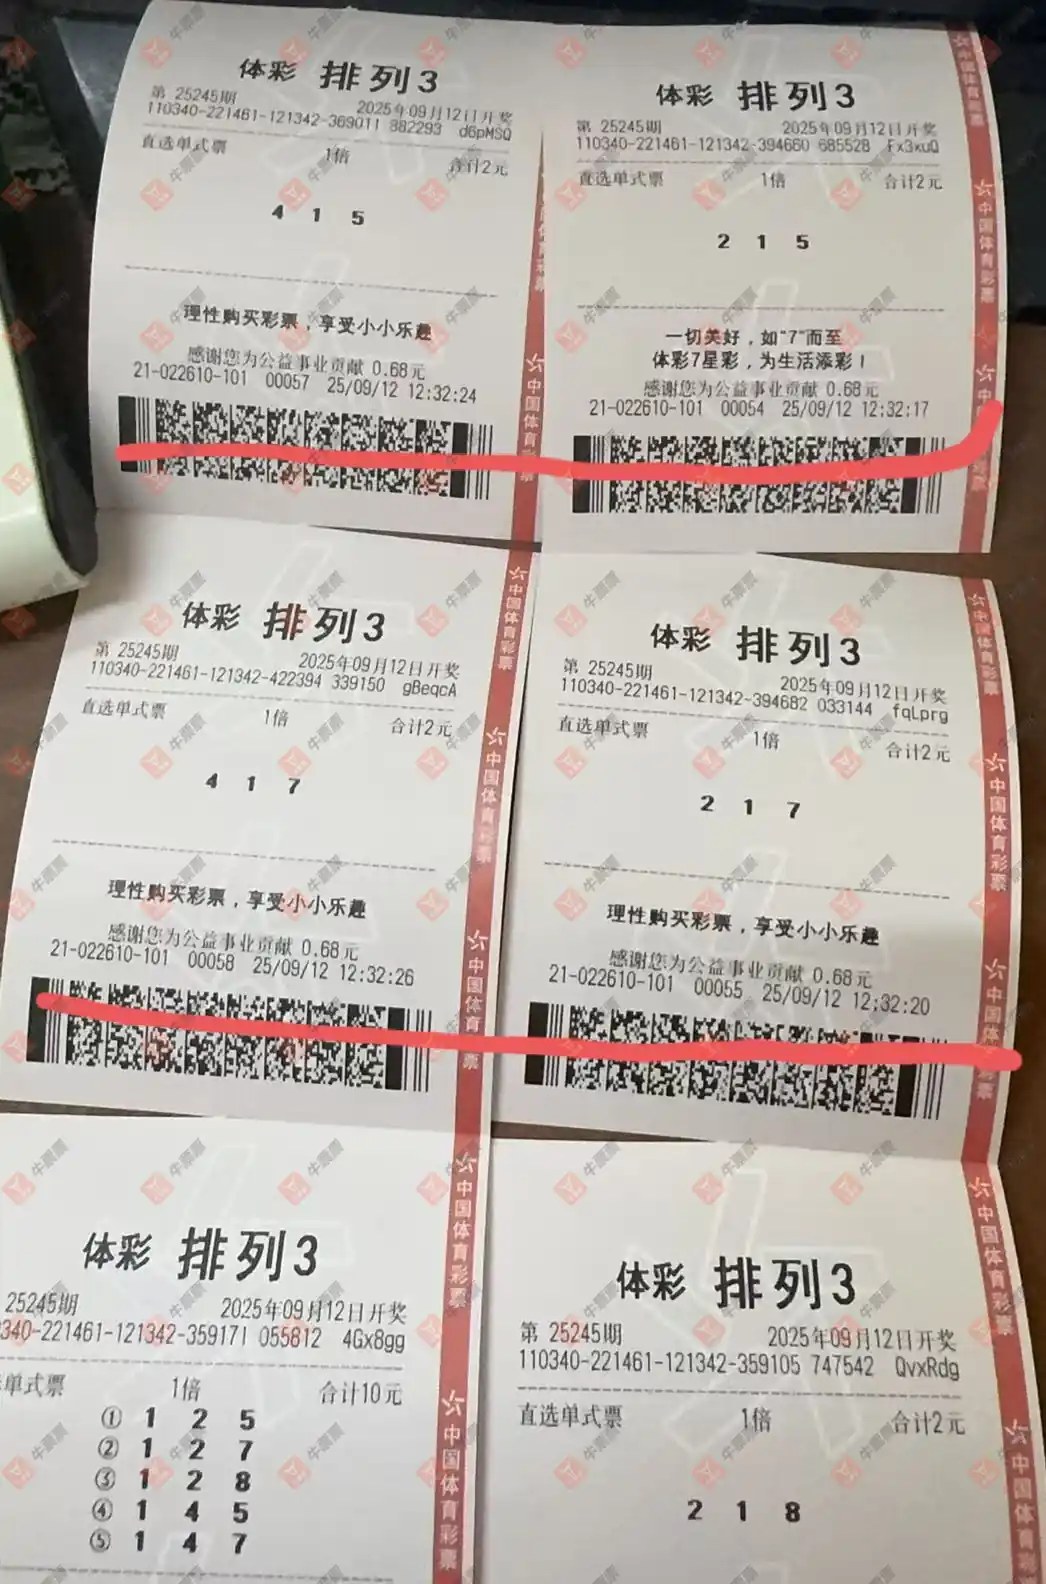 体彩 排列3
第 25245期 2025年09月12日开奖
110340-221461-121342-369011 882293 d6pMSQ
直选单式票 1倍 合计2元
4 1 5
理性购买彩票，享受小小乐趣
感谢您为公益事业贡献 0.68元
21-022610-101 00057 25/09/12 12:32:24
体彩 排列3
第 25245期 2025年09月12日开奖
110340-221461-121342-394660 685528 Fx3kuQ
直选单式票 1倍 合计2元
2 1 5
一切美好，如"7"而至
体彩7星彩，为生活添彩！
感谢您为公益事业贡献 0.68元
21-022610-101 00054 25/09/12 12:32:17
体彩 排列3
第 25245期 2025年09月12日开奖
110340-221461-121342-422394 339150 gBeqcA
直选单式票 1倍 合计2元
4 1 7
理性购买彩票，享受小小乐趣
感谢您为公益事业贡献 0.68元
21-022610-101 00058 25/09/12 12:32:26
体彩 排列3
第 25245期 2025年09月12日开奖
110340-221461-121342-394682 033144 fqLprg
直选单式票 1倍 合计2元
2 1 7
理性购买彩票，享受小小乐趣
感谢您为公益事业贡献 0.68元
21-022610-101 00055 25/09/12 12:32:20
体彩 排列3
25245期 2025年09月12日开奖
340-221461-121342-359171 055812 4Gx8gg
单式票 1倍 合计10元
① 1 2 5
② 1 2 7
③ 1 2 8
④ 1 4 5
⑤ 1 4 7
体彩 排列3
第 25245期 2025年09月12日开奖
110340-221461-121342-359105 747542 QvxRdg
直选单式票 1倍 合计2元
2 1 8
中国体育彩票
牛票票